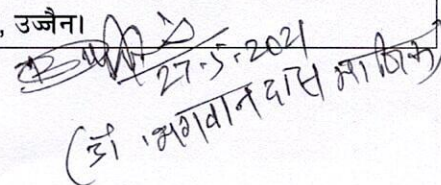 , उज्जैन।
27-5-2021
(डॉ. भगवान दास माणिक)